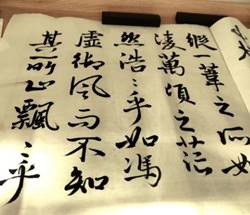 縱一葦之所如
凌萬頃之茫
然浩〻乎如馮
虛御風而不知
其所止飄〻乎